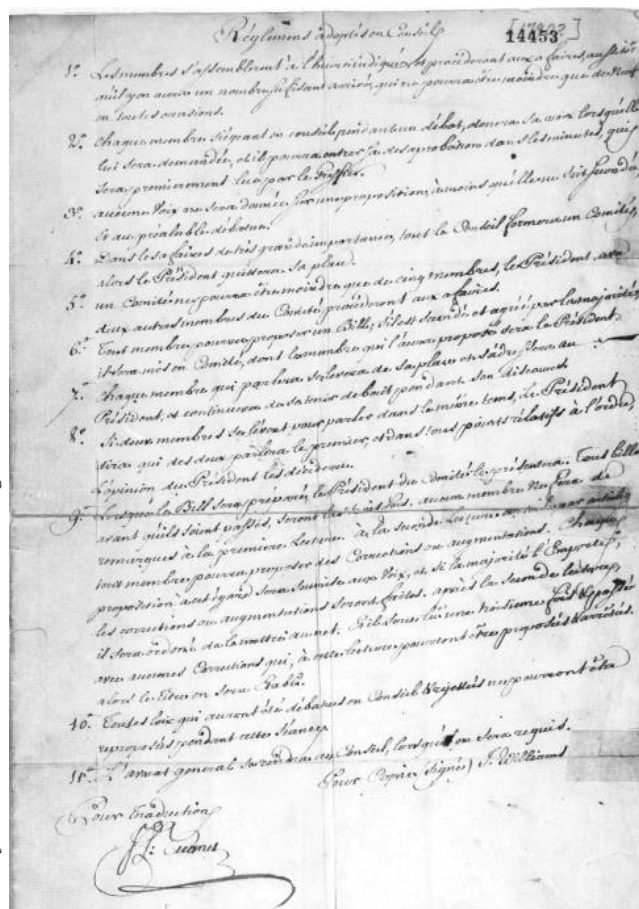 Réglemens adoptés en Conseil
[1782?]
14453
1º. Les membres s'assembleront à l'heure indiquée, et procéderont aux afaires, aussitôt
qu'il y en aura un nombre sufisant arrivé, qui ne pourra être moindre que de Neuf
en toutes occasions.
2º. Chaque membre siégeant en conseil pendant un débat, donnera sa voix lorsqu'elle
lui sera demandée, et il pourra entrer sa desaprobation dans les minutes, qui
sera premierement lue par le Greffier.
3º. aucune Voix ne sera donnée sur une proposition, à moins qu'elle ne soit secondée
et au préalable débatue.
4º. Dans les afaires de très grande importance, tout le Conseil formera un Comité,
alors le Président quittera sa place.
5º. un Comité ne pourra être moindre que de cinq membres, le Président avec
deux autres membres du Comité procéderont aux afaires.
6º. Tout membre pourra proposer un Bill; s'il est secondé et agréé par la majorité
il sera mis en Comité, dont le membre qui l'aura proposé sera le Président.
7º. Chaque membre qui parlera se levera de sa place et s'adressera au
Président, et continuera de se tenir debout pendant son discours.
8º. Si deux membres se lèvent pour parler dans le même tems, le Président
dira qui des deux parlera le premier, et dans tous points rélatifs à l'ordre,
l'opinion du Président les décidera.
9º. Lorsque le Bill sera préparé, le Président du Comité le présentera. Tous bills
avant qu'ils soient passés, seront lus trois fois. aucun membre ne fera de
remarques à la premiere Lecture. à la seconde Lecture
tout membre pourra proposer des Corrections ou augmentations. Chaque
proposition à cet égard sera soumise aux Voix, et si la majorité l'emporte,
les corrections ou augmentations seront faites. après la seconde lecture,
il sera ordonné de la mettre au net. Et il sera lu une troisieme fois & passé
avec aucunes Corrections qui, à cette lecture pourront être proposées & arrêtées.
alors le titre en sera établi.
10º. Toutes loix qui auront été débatues en Conseil & rejettées ne pourront être
reproposées pendant cette séance.
11º. L'avocat général se rendra au Conseil, lorsqu'il en sera requis.
Pour Copie (Signé) J. Williams
Pour traduction